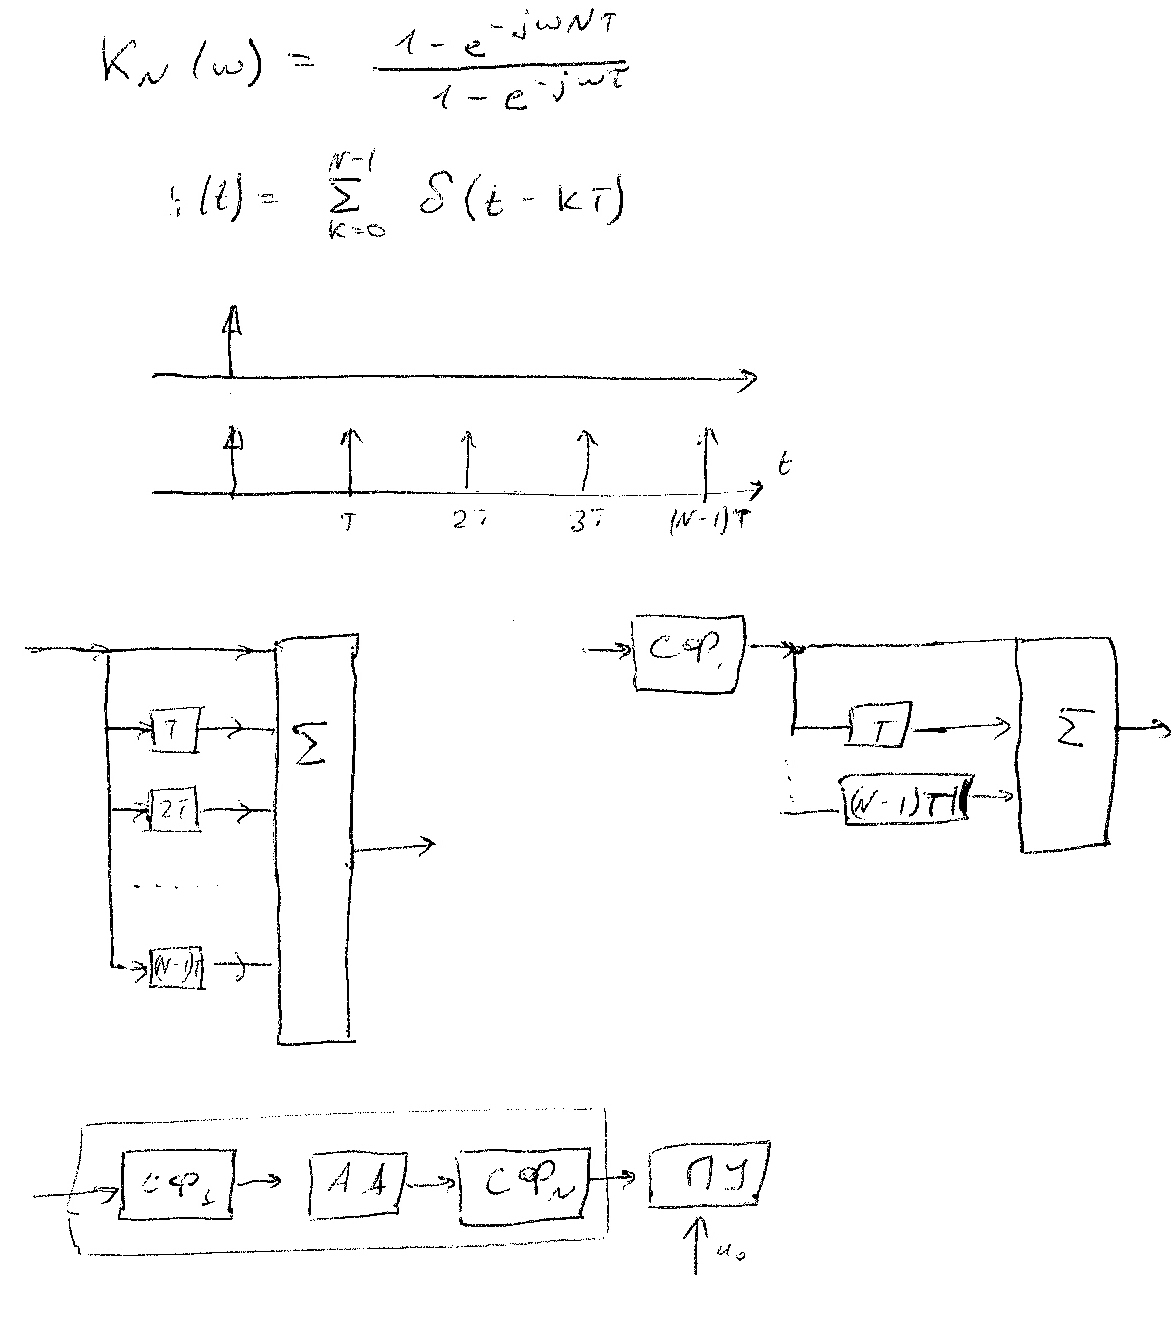 K_N (ω) = (1 - e^{-jωNT}) / (1 - e^{-jωT})
(t) = Σ_{k=0}^{N-1} δ(t - kT)
t
T 2T 3T (N-1)T
T
2T
.....
(N-1)T
Σ
СФ₁
T
(N-1)T
Σ
СФ₁ АД СФ_N ПУ
u₀